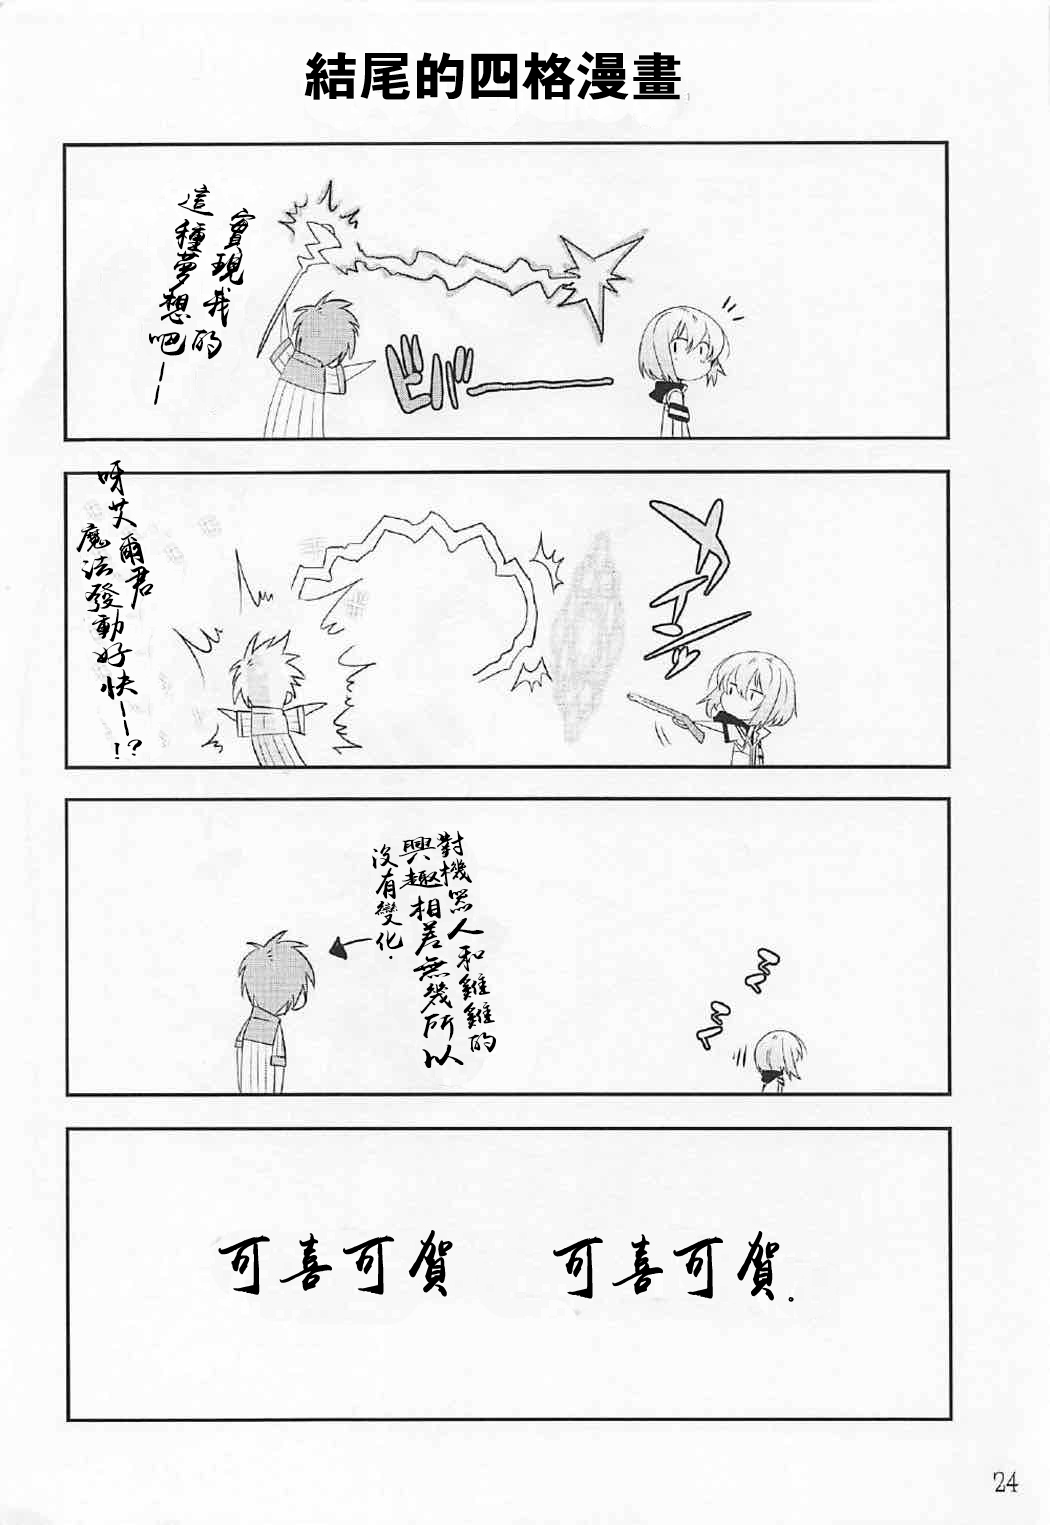 結尾的四格漫畫
實現我的
這種夢想吧——
ビバ——
呀艾爾君
魔法發動好快——!?
對機器人和雞雞的
興趣相差無幾所以
沒有變化.
可喜可賀 可喜可賀.
24